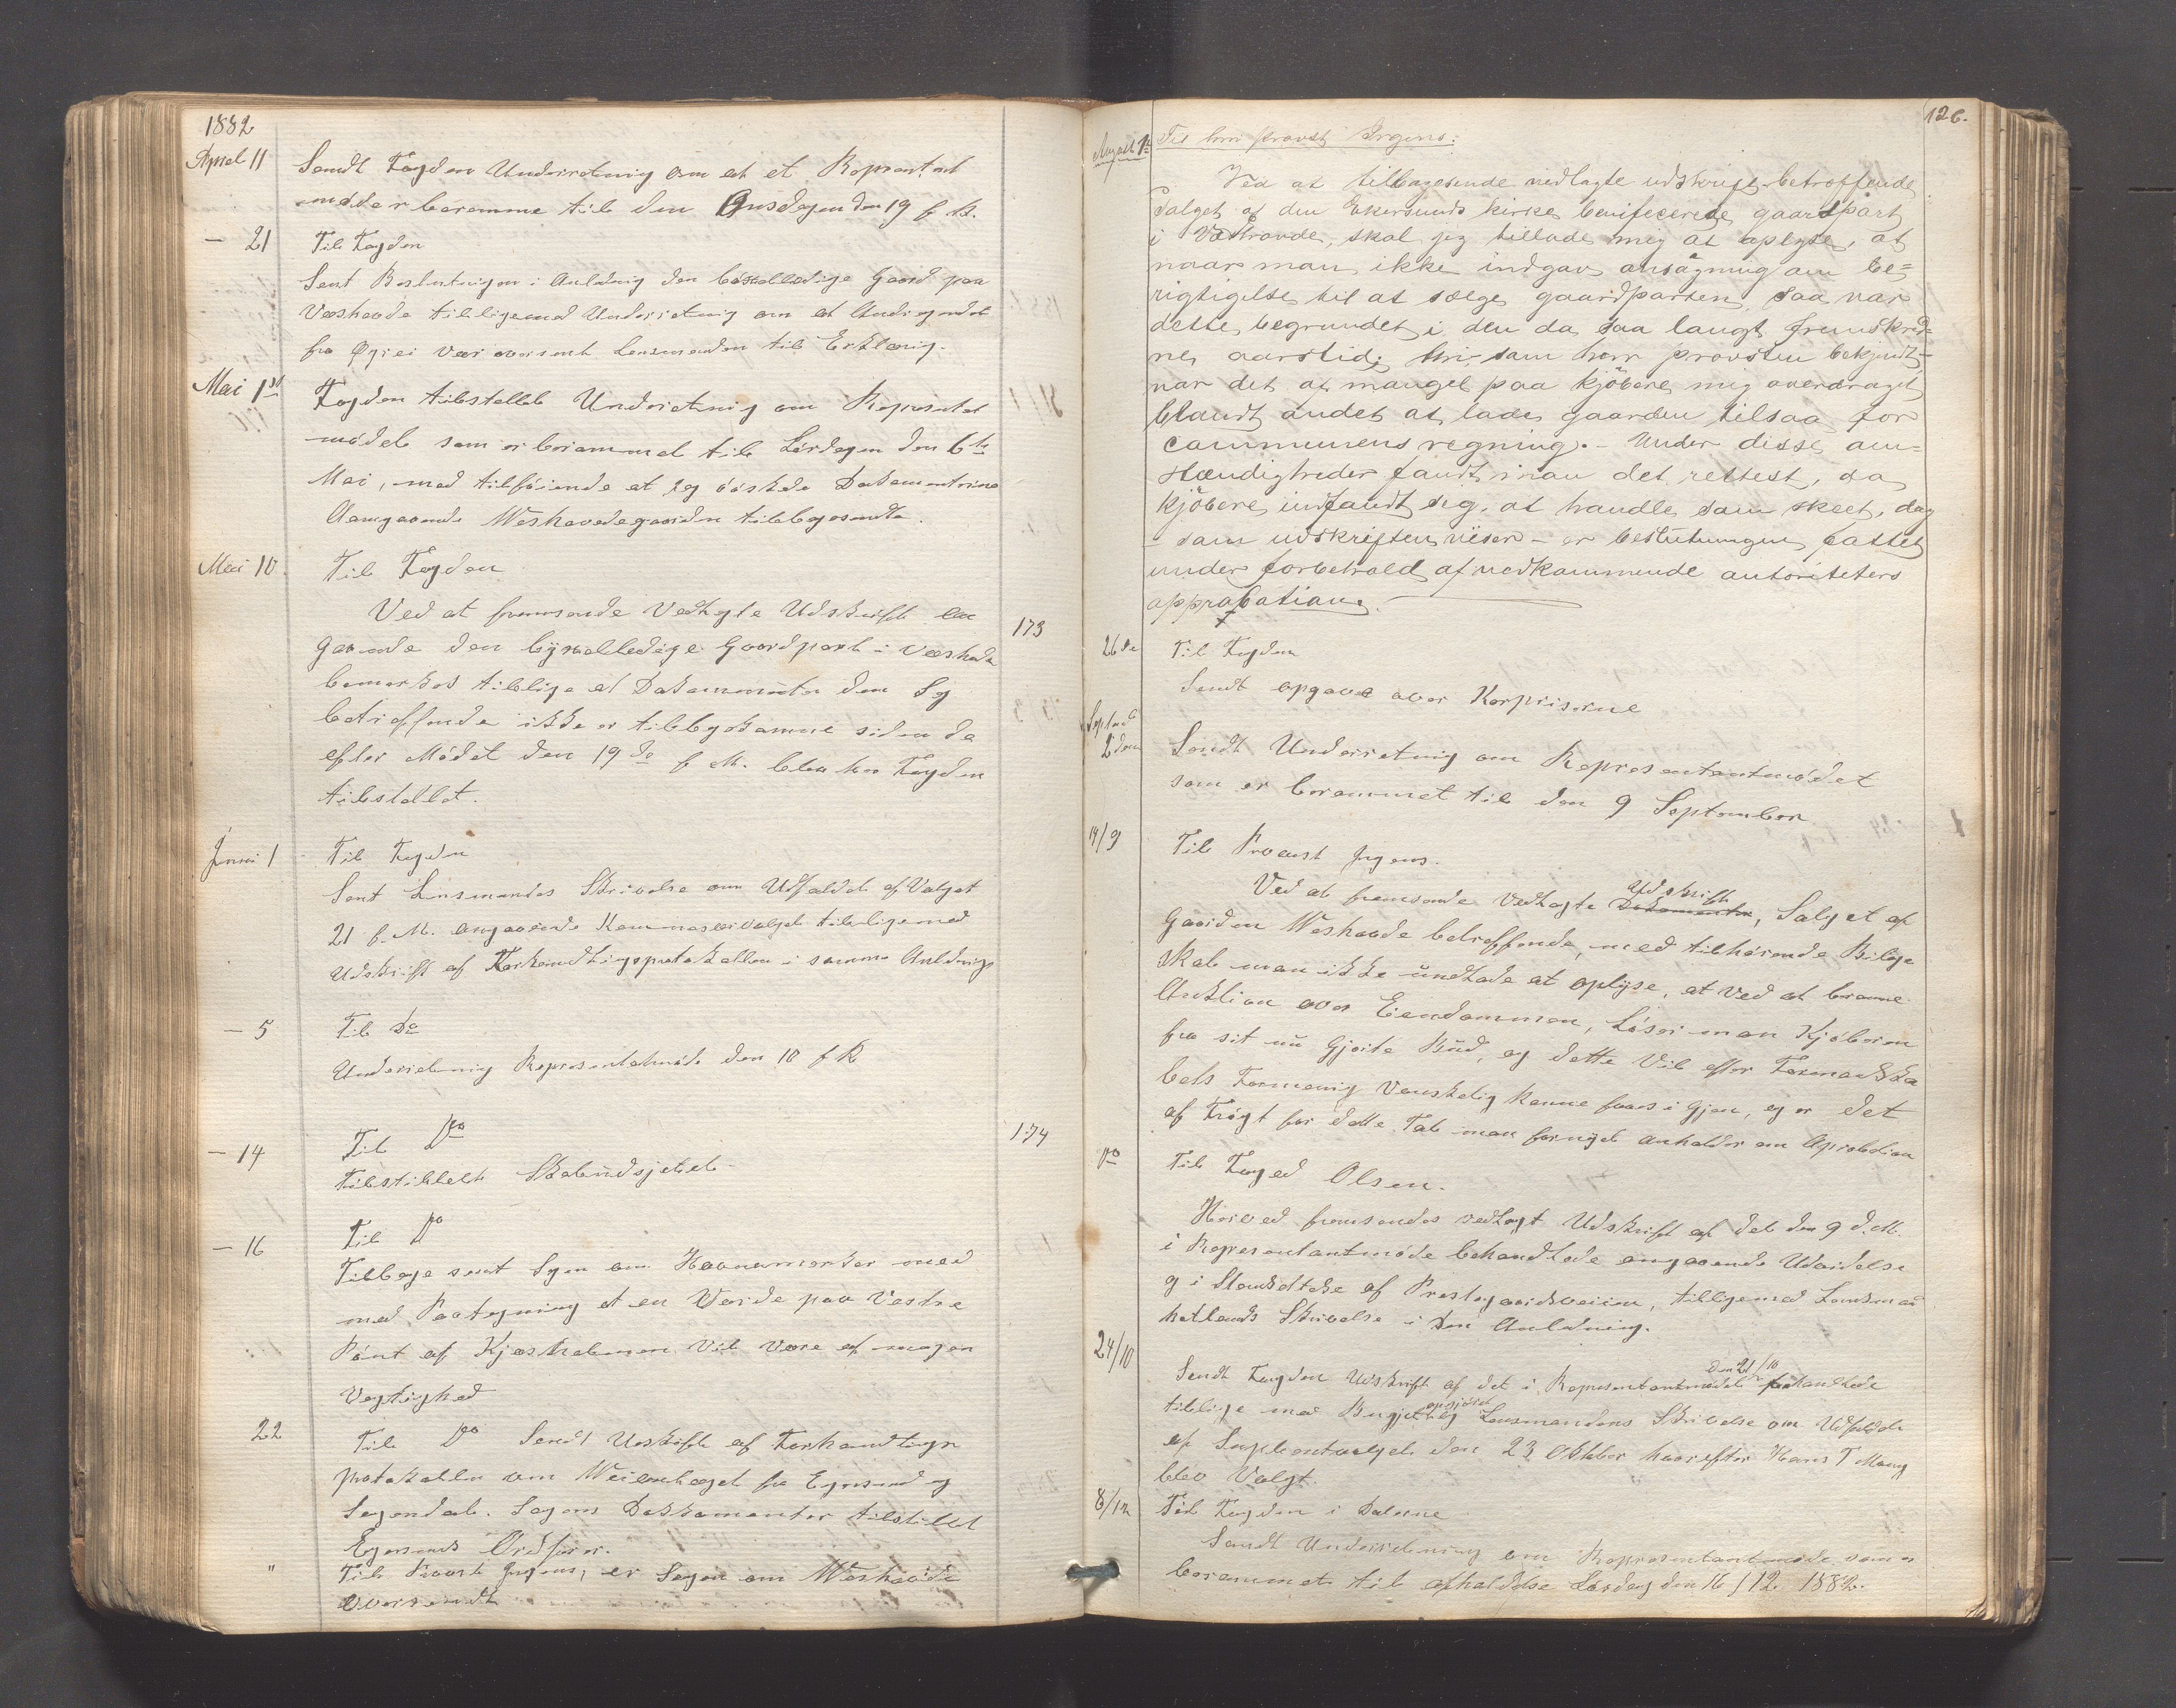 1882
April 11 Sendt Fogden Underretning om at et Represntant
møde er beramme til den Onsdagen den 19 f. K.
— 21 Til Fogden
Sent Beslutnigen i Anledning den bøxelledige Gaard paa
Veshovde tilligemed Underretning om at Andragendet
fra Øgrei var oversent Lensmanden til Erklærig.
Mai 1ste Fogden tilstellet Underretnig om Represntat
mødet som er berammet til Lørdagen den 6te
Mai, med tilføiende at jeg ønskede Dokumentrene
Aangaaende Weshovdegaarden tilbagesendte.
Mai 10. Til Fogden
Ved at fremsende Vedlagte Udskrift an
gaaende den bygselledige Gaardpart i Veshovde 173
bemærkes tillige at Dokummenter den Sag
betreffende ikke er tilbagekomme siden de
efter Mødet den 19de f. M. blev hr Fogden
tilstellet.
Juni 1 Til Fogden
Sent Lensmandes Skrivelse om Udfaldet af Valget
21 f. M. angaaende Kommnesvalget tilligemed
Udskrift af Forhandlingsprotokollen i samme Anledning
— 5 Til Do
Underretnig Represntatmøde den 10 f K
— 14 Til Do 174
Tilstillelt Skabudsjetet
— 16 Til Do
Tilbage sent Sagen om Havnemerker med
med Paategning at en Varde paa Vestre
Pønt af Kjøsholmen vil være af megen
Vegtighed
22 Til Do Sendt Udskift af Forhandlings
protokollen om Weianlæget fra Egersund og
Sogendal. Sagens Dokkumenter tilstillet
Egersunds Ordfører.
" Til Provst Jrgens, er Sagen om Weshovde
oversendt
126.
August 1ste Til hrr provst Irgens:
Ved at tilbagesende vedlagte udskrift betræffende
Salget af den Ekersunds kirke benificerede gaardpart
i Væshovde, skal jeg tillade mig at oplyse, at
naar man ikke indgav ansøgning om be=
rigtigelse til at sælge gaardparten, saa var
dette begrundet i den da saa langt fremskred=
ne aarstid; thi, som herr provsten bekjendt,
var det af mangel paa kjøbere mig overdraget
blandt andet at lade gaarden tilsaa for
communens regning. — Under disse om=
stændigheder fandt man det rettest, da
kjøbere indfandt sig, at handle som skeet, dog
— som udskriften viser — er beslutningen fattet
under forbehold af vedkommende autoriteters
approbation.
26de Til Fogden
Sendt opgave over Kornpriserne
Septmb 2den Sendt Underretnig om Representantmødet
som er berammet til den 9 September
14/9 Til Provst Jrgens.
Ved at fremsende Vedlagte Udskrift Dokumenter, Salget af
Gaarden Weshovde betreffende, med tilhørende Bilage
skal man ikke undlade at oplyse, at ved at beramme
Auktion over Eiendommen, Løser man Kjøberen
fra sit nu Gjorte Bud, og dette vil efter Formandska
bets Formenig vanskelig kunne faaes i Gjen, og er det
af Frøgt for dette Tab man fornyet anholder om Aprobation
Do Til Foged Olsen.
Herved fremsendes vedlagt Udskrift af det den 9 d. M.
i Representantmøde behandlede angaaende Udvidelse
og i Standsettelse af Prestegaardsveien, tilligemed Lensmand
hetlands Skrivelse i den Anledning.
24/10 Sendt Fogden Udskrift af det i Representantmødet den 21/10 behandlede
tillige med Bugjet og Lensmandens Skrivelse om Udfaldet
af Suplentvalget den 23 Oktober hvorefter Hans T Maug
blev Valgt.
8/12 Til Fogden i Dalerne
Sendt Underretning om Representantmøde som er
berammet til afholdelse Lørdag den 16/12 1882.